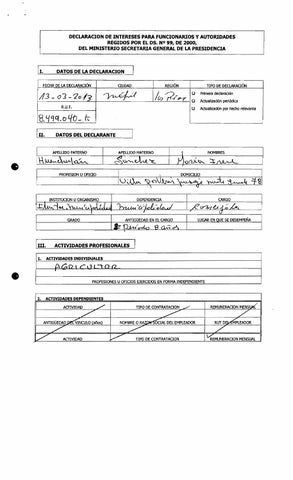 DECLARACION DE INTERESES PARA FUNCIONARIOS Y AUTORIDADES
REGIDOS POR EL DL Nº 99, DE 2000,
DEL MINISTERIO SECRETARIA GENERAL DE LA PRESIDENCIA
I. DATOS DE LA DECLARACION
FECHA DE LA DECLARACIÓN CIUDAD REGIÓN TIPO DE DECLARACIÓN
13-03-2013
Primera declaración
Actualización periódica
Actualización por hecho relevante
R.U.T.
8.499.040-K
II. DATOS DEL DECLARANTE
APELLIDO PATERNO APELLIDO MATERNO NOMBRES
Sanchez María
PROFESION U OFICIO DOMICILIO
Villa 78
INSTITUCION U ORGANISMO DEPENDENCIA CARGO
municipalidad Concejala
GRADO ANTIGÜEDAD EN EL CARGO LUGAR EN QUE SE DESEMPEÑA
Periodo 8 años
III. ACTIVIDADES PROFESIONALES
1. ACTIVIDADES INDIVIDUALES
AGRICULTOR
PROFESIONES U OFICIOS EJERCIDOS EN FORMA INDEPENDIENTE
2. ACTIVIDADES DEPENDIENTES
ACTIVIDAD TIPO DE CONTRATACION REMUNERACION MENSUAL
ANTIGÜEDAD DEL VINCULO (años) NOMBRE O RAZON SOCIAL DEL EMPLEADOR RUT DEL EMPLEADOR
ACTIVIDAD TIPO DE CONTRATACION REMUNERACION MENSUAL